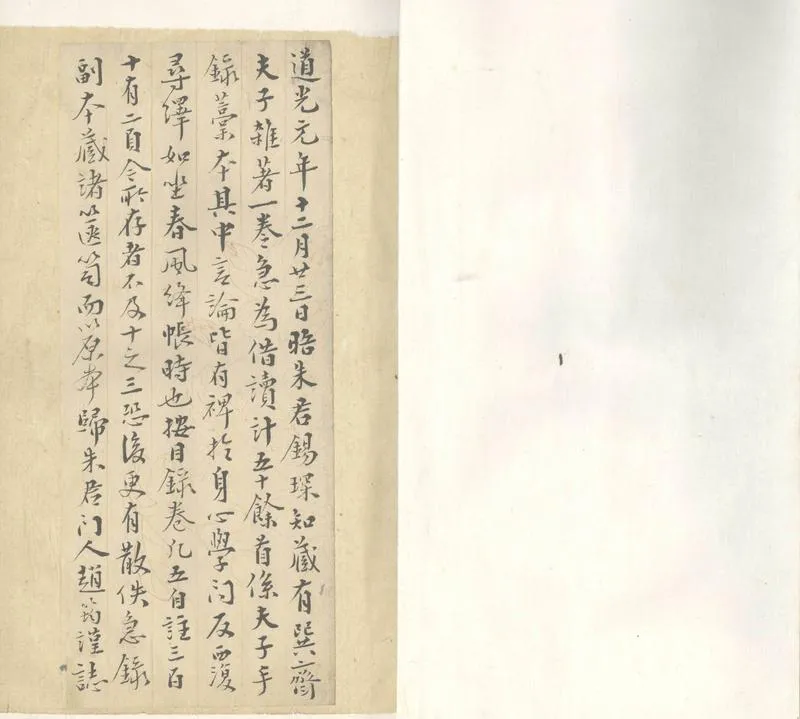 道光元年十二月廿三日晤朱君錫琛知藏有巽齋
夫子雜著一卷急為借讀計五十餘首係夫子手
錄藁本其中言論皆有裨於身心學問反西復
尋繹如坐春風絳帳時也按目錄卷凡五自註三百
十有二首今所存者不及十之三恐後更有散佚急錄
副本藏諸篋笥而以原本歸朱君门人趙筠謹誌